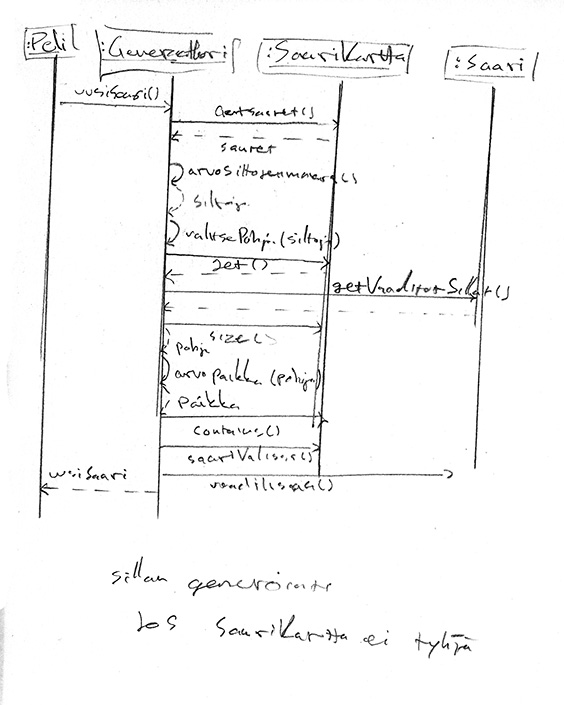 :Peli :Generaattori :SaariKartta :Saari
uusiSaari()
getSaaret()
saaret
arvoSiltojenmaara()
siltoja
valitsePohja(siltoja)
get()
getVaaditutSillat()
size()
pohja
arvopaikka(pohja)
paikka
contains()
saariValissa()
uusiSaari
vaadiLisaa()
sillan generointi
Jos SaariKartta ei tyhjä